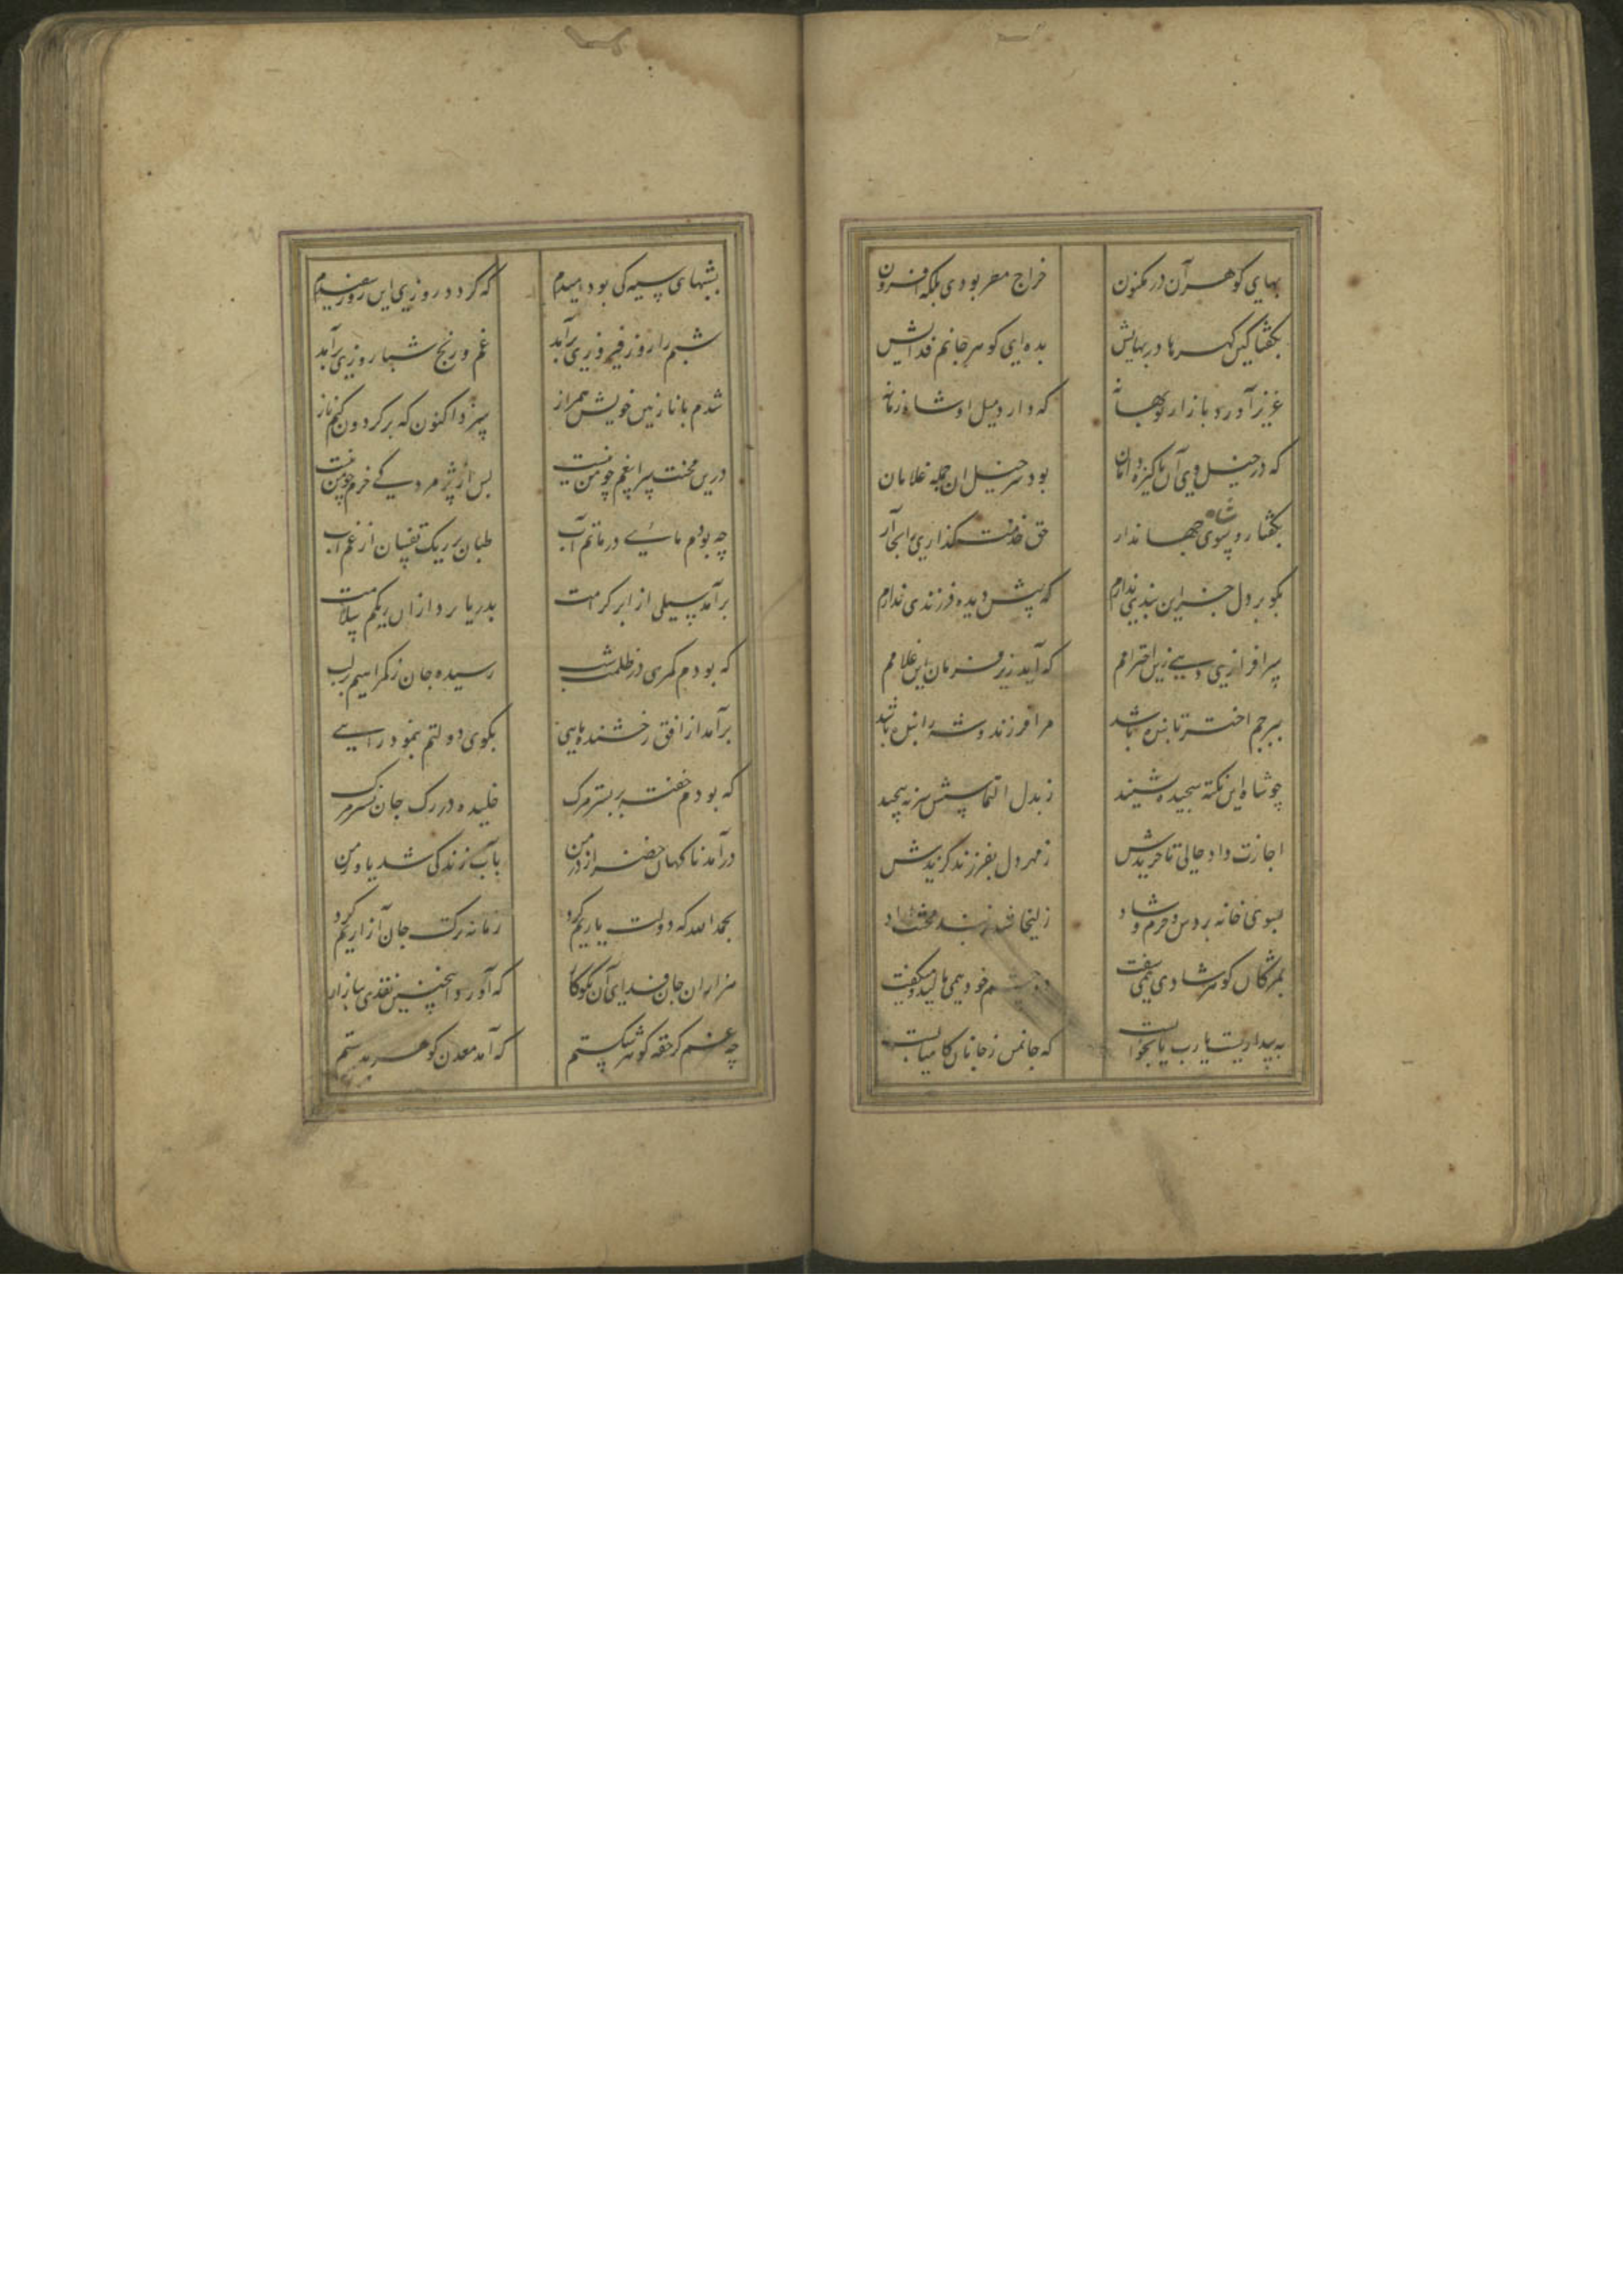 بهای گوهر آن در مکنون خراج مصر بودی بلکه افزون
بگفتا کین گهرها در بهایش بده ای گوهر جانم فدایش
عزیز آورد باز از نو بهانه که دارد میل او شاه زمانه
که در خیل وی آن پاکیزه دامان بود سر خیل آن جمله غلامان
بگفتا رو بسوی شاه جهاندار حق خدمت گذاری را بجا آر
بگو بر دل جز این بندی ندارم که پیش دیده فرزندی ندارم
سرافرازی دهی زین احترامم که آید زیر فرمان این غلامم
ببرجم اختر تابنده باشد مرا فرزند و شه را بنده باشد
چو شاه این نکته سنجیده بشنید ز بدل التماسش سر نه پیچید
اجازت داد حالی تا خریدش ز مهر دل بفرزندی گزیدش
بسوی خانه بردش خرم و شاد زلیخا شد ز بند محنت آزاد
بمژگان گوهر شادی همی سفت دو چشم خود همی مالید و میگفت
به بیداریست یا رب یا بخوابست که جان من ز جانان کامیابست
بشبهای سیه کی بود امیدم که گردد روزی این روز سفیدم
شبم را روز فیروزی برآمد غم و رنج شبا روزی برآمد
شدم با نازنین خویش همراز سزد اکنون که بر گردون کنم ناز
درین محنت سرا بیغم چو من نیست پس از پژمردگی خرم چو من نیست
چه بودم ماهیی در ماتم آب طپان بر ریگ تفسان از غم آب
برآمد سیلی از ابر کرامت بدریا برد ازان ریگم سلامت
که بودم گمرهی در ظلمت شب رسیده جان ز گمراهیم بر لب
برآمد از افق رخشنده ماهی بکوی دولتم بنمود راهی
که بودم خفته بر بستر مرگ خلیده در رگ جان نشتر مرگ
درآمد ناگهان خضر از در من بآب زندگی شد یاور من
بحمد الله که دولت یاریم کرد زمانه ترک جان آزاریم کرد
هزاران جان فدای آن نکوکار که آورد اینچنین نقدی ببازار
چه غم گر حقه گوهر شکستم که آمد معدن گوهر بدستم